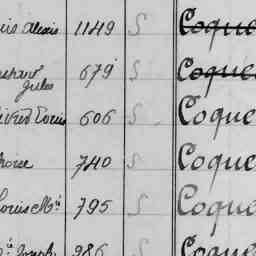 uis Alexis 1149 S Coque
Jules 679 S Coque
606 S Coque
740 S Coque
Louis Mie 795 S Coque
Joseph 986 S Coque